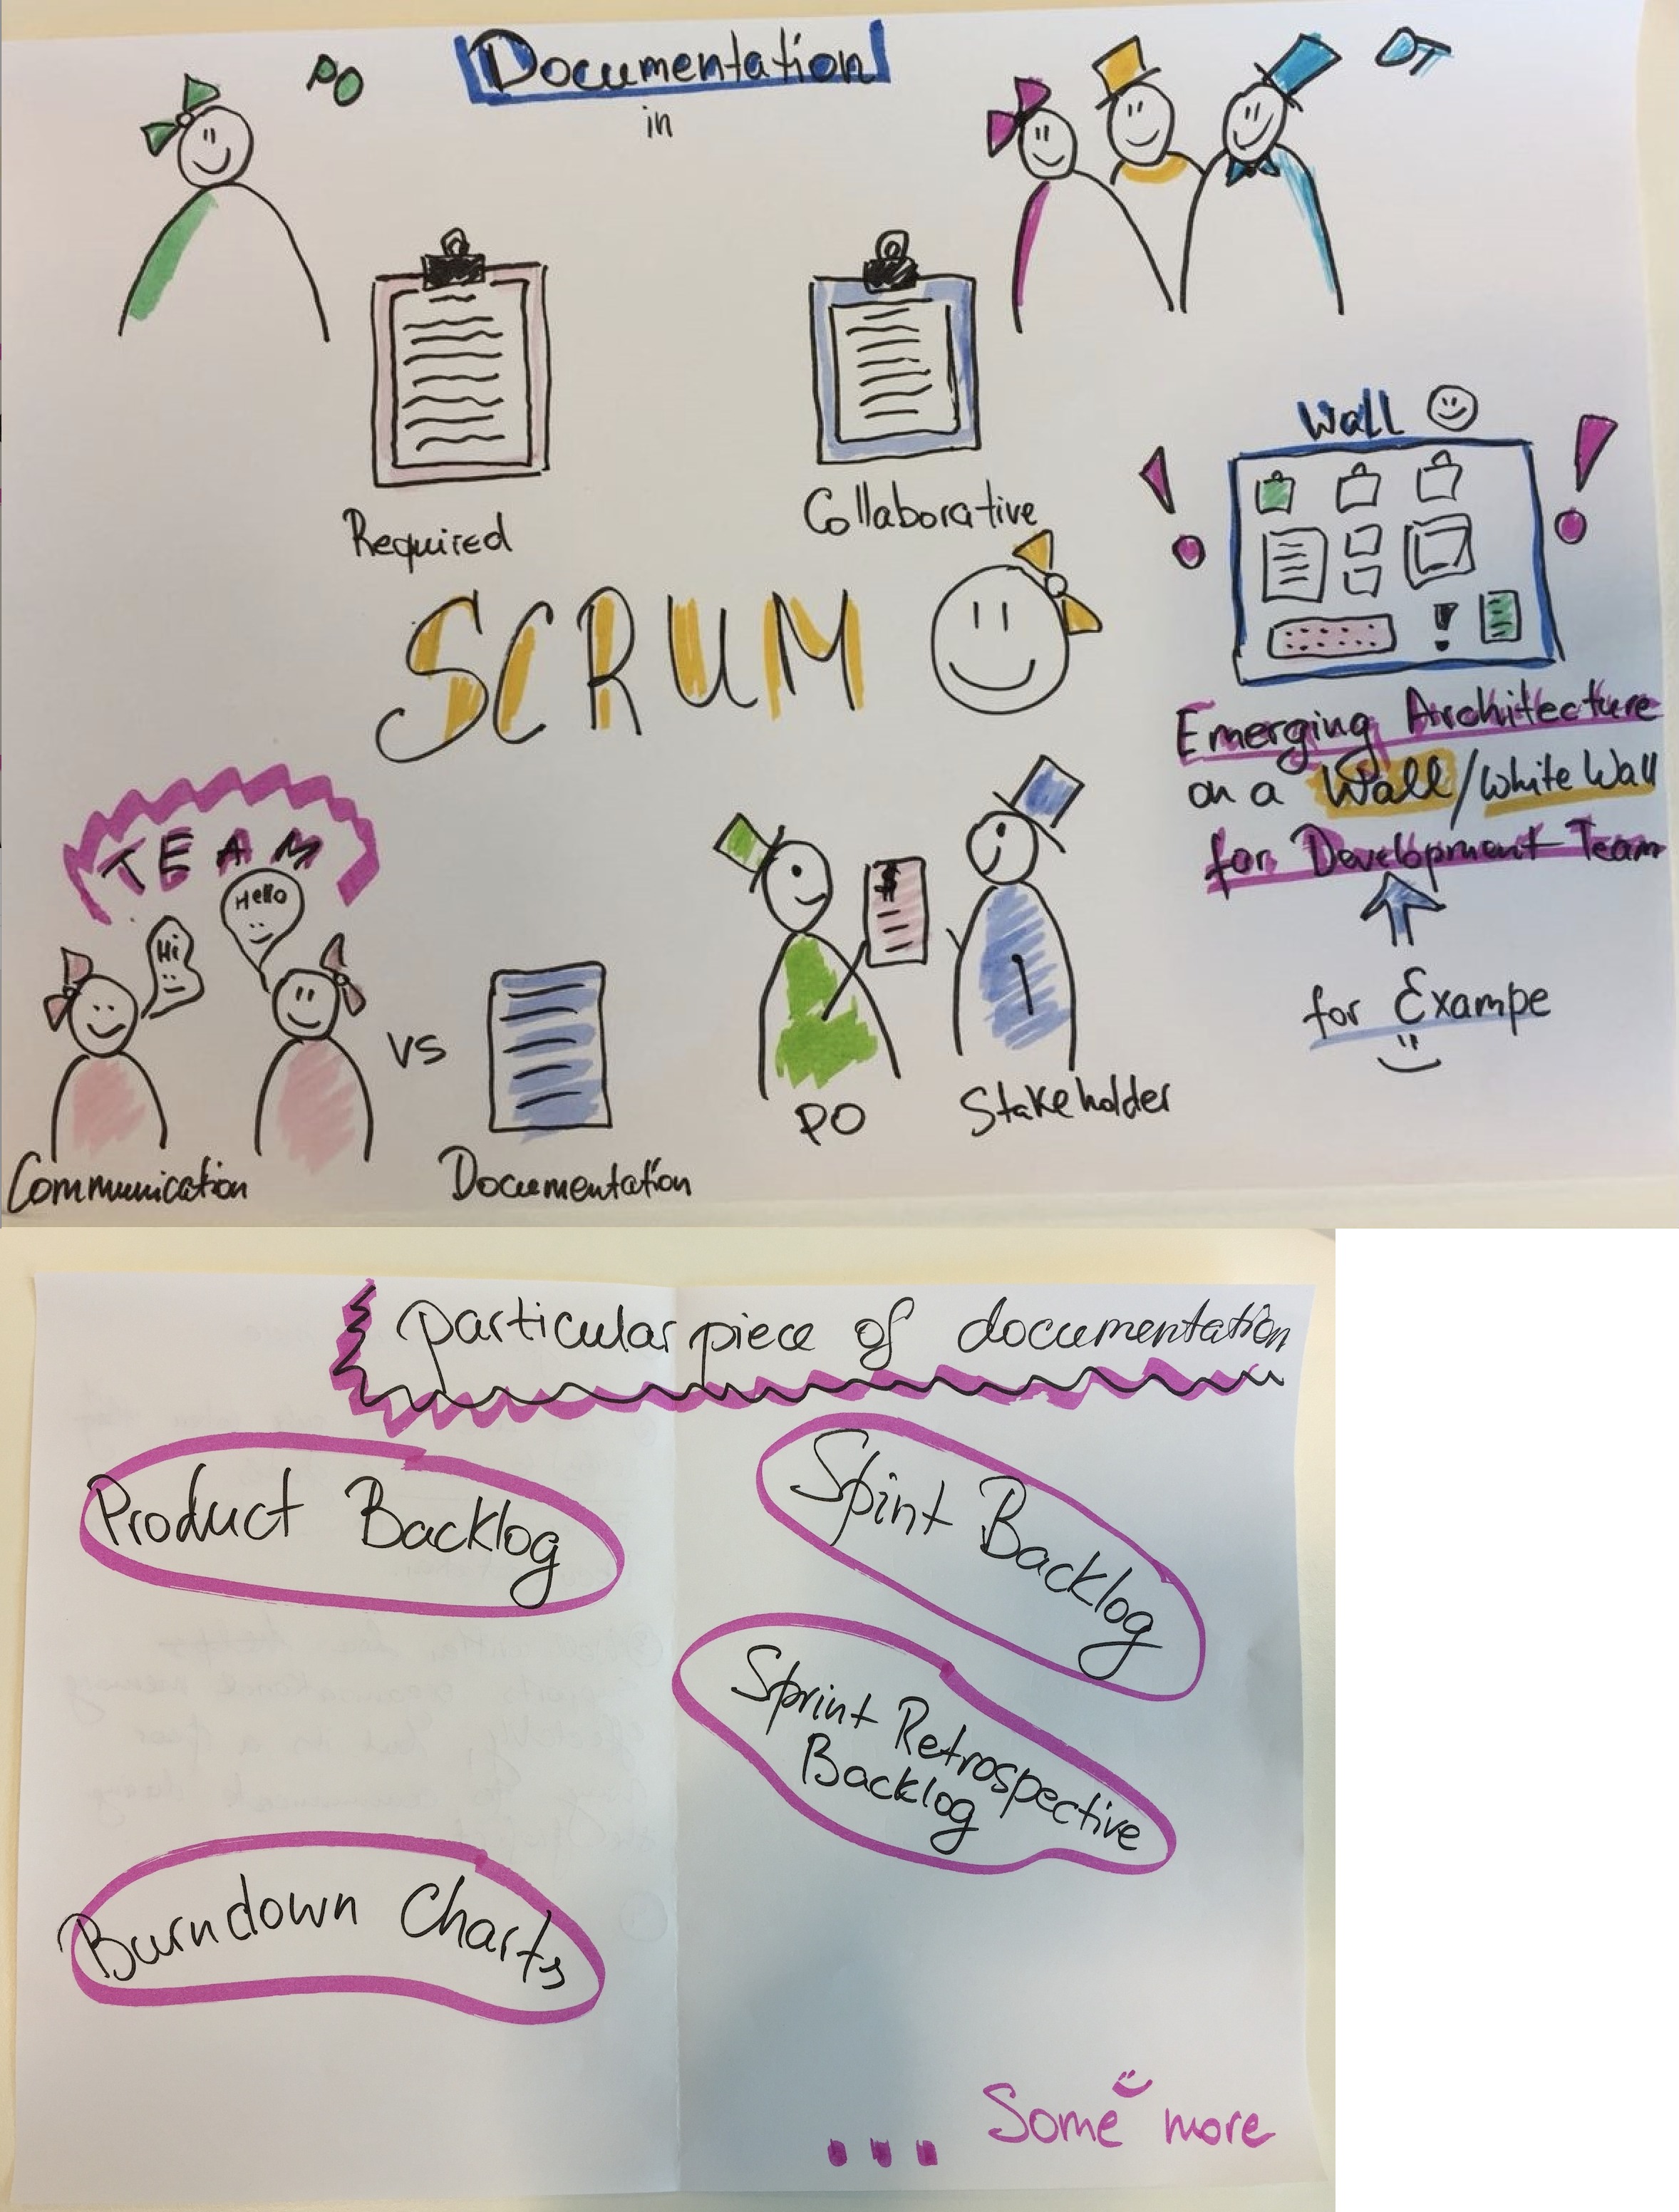 PO
Documentation
in
DT
Required
Collaborative
Wall
SCRUM
Emerging Architecture
on a Wall/White Wall
for Development Team
for Exampe
TEAM
Hi
Hello
vs
$
PO
Stakeholder
Communication
Documentation
particular piece of documentation
Product Backlog
Spint Backlog
Sprint Retrospective
Backlog
Burndown Charts
... Some more